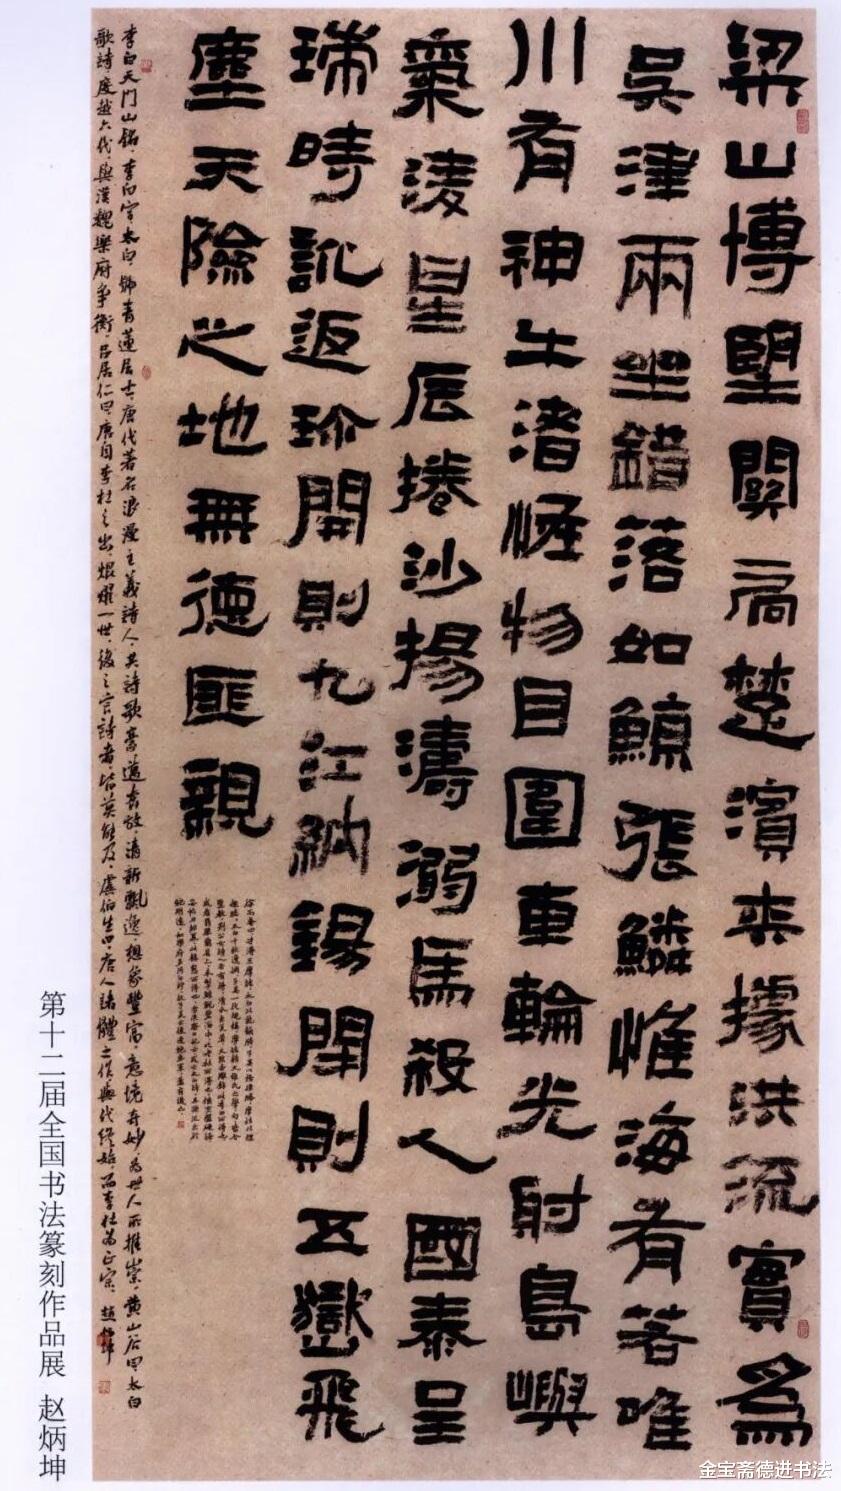 梁山博望關扃楚濱夾據洪流實爲
吳津兩坐錯落如鯨張鱗惟海有若唯
川有神牛渚怪物目圍車輪光射島嶼
氣淩星辰捲沙揚濤溺馬殺人國泰呈
瑞時訛返珍開則九江納錫閉則五嶽飛
塵天險之地無德匪親
李白天門山銘，李白字太白，號青蓮居士，唐代著名浪漫主義詩人，其詩歌豪邁奔放，清新飄逸，想象豐富，意境奇妙，為世人所推崇，黃山谷曰，太白
歌詩，度越六代，與漢魏樂府爭衡，呂居仁曰，唐自李杜之出，焜燿一世，後之言詩者，皆莫能及，虞伯生曰，唐人諸體之作與代終始，而李杜為正宗，趙炳坤
第十二届全国书法篆刻作品展 赵炳坤
金宝斋德进书法